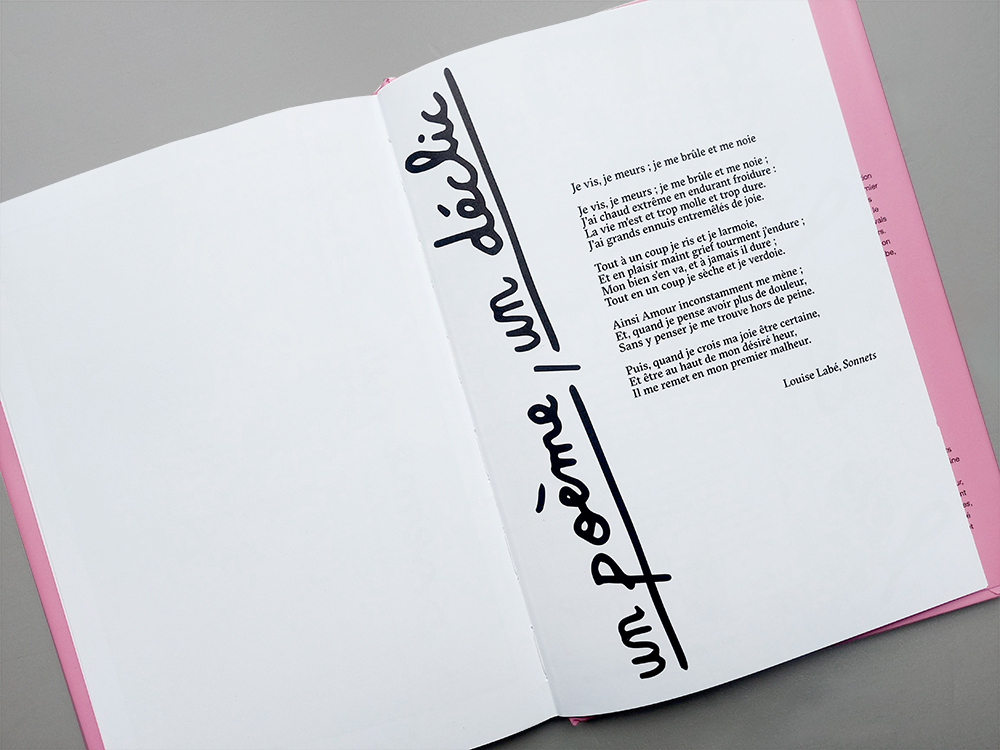 un poème / un déclic
Je vis, je meurs ; je me brûle et me noie
Je vis, je meurs ; je me brûle et me noie ;
J'ai chaud extrême en endurant froidure :
La vie m'est et trop molle et trop dure.
J'ai grands ennuis entremêlés de joie.
Tout à un coup je ris et je larmoie,
Et en plaisir maint grief tourment j'endure ;
Mon bien s'en va, et à jamais il dure ;
Tout en un coup je sèche et je verdoie.
Ainsi Amour inconstamment me mène ;
Et, quand je pense avoir plus de douleur,
Sans y penser je me trouve hors de peine.
Puis, quand je crois ma joie être certaine,
Et être au haut de mon désiré heur,
Il me remet en mon premier malheur.
Louise Labé, Sonnets